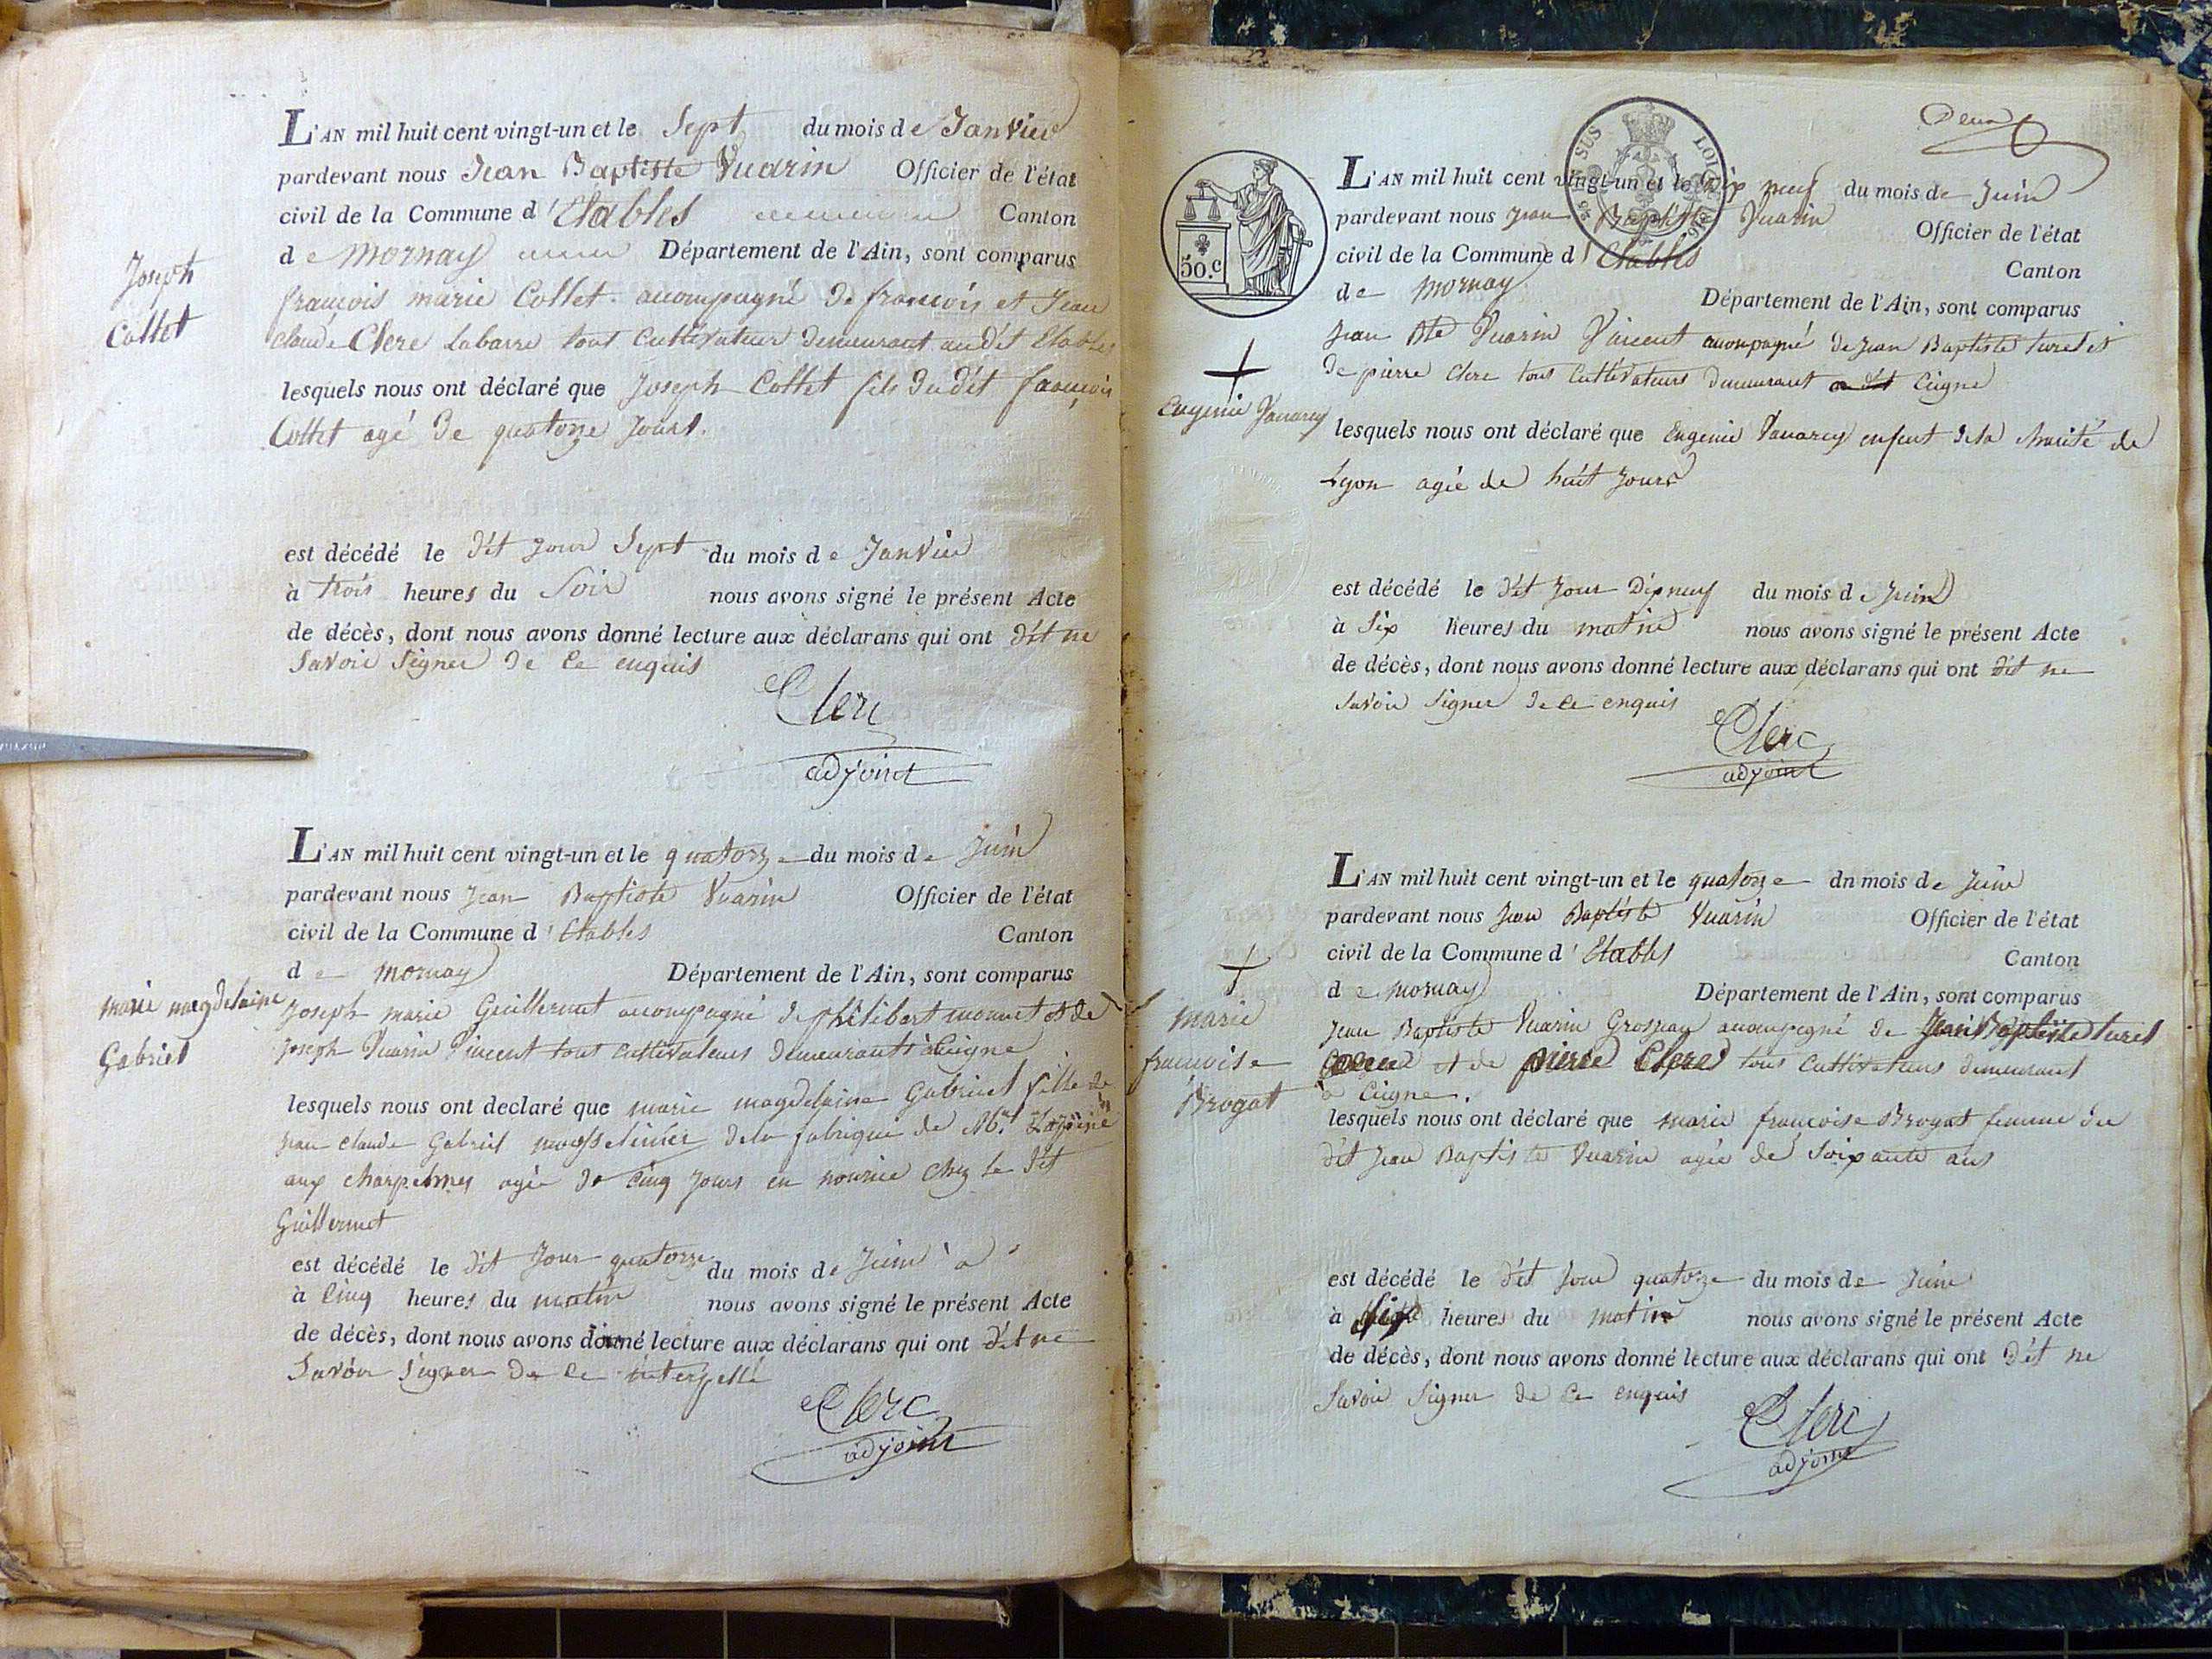 L'AN mil huit cent vingt-un et le Sept du mois de Janvier
pardevant nous Jean Baptiste Vuarin Officier de l'état
civil de la Commune d'Etables Canton
de Mornay Département de l'Ain, sont comparus
Joseph
Collet
françois marie Collet acompagné de françois et Jean
claude Clerc Labarre tout Cultivateur demeurant au dit Etables
lesquels nous ont déclaré que Joseph Collet fils du dit françois
Collet agé de quatorze Jours.
est décédé le dit Jour Sept du mois de Janvier
à trois heures du Soir nous avons signé le présent Acte
de décès, dont nous avons donné lecture aux déclarans qui ont dit ne
Savoir Signer de Ce enquis
Clerc
adjoint
L'AN mil huit cent vingt-un et le quatorze du mois de Juin
pardevant nous Jean Baptiste Vuarin Officier de l'état
civil de la Commune d'Etables Canton
de mornay Département de l'Ain, sont comparus
marie magdelaine
Gabriel
Joseph marie Guillermet acompagné de philibert monnet et de
Joseph Vuarin Vincent tout cultivateurs demeurants à Ceigne
lesquels nous ont declaré que marie magdelaine Gabriel fille de
Jean claude Gabriel de la fabrique de Mr.
aux charpennes agée de Cinq Jours en nourice chez le dit
Guillermet
est décédé le dit Jour quatorze du mois de Juin à
à Cinq heures du matin nous avons signé le présent Acte
de décès, dont nous avons donné lecture aux déclarans qui ont dit ne
Savoir Signer de Ce interpellé
Clerc
adjoint
Deux
50.c
L'AN mil huit cent vingt-un et le dix neuf du mois de Juin
pardevant nous Jean Baptiste Vuarin Officier de l'état
civil de la Commune d'Etables Canton
de mornay Département de l'Ain, sont comparus
Jean Bte Vuarin Vincent acompagné de Jean Baptiste turel et
de pierre Clerc tous Cultivateurs demeurant Ceigne
Eugenie Vavarey
lesquels nous ont déclaré que Eugenie Vavarey enfent de la Charité de
Lyon agée de huit Jours
est décédé le dit Jour Dix neuf du mois de Juin
à Six heures du matin nous avons signé le présent Acte
de décès, dont nous avons donné lecture aux déclarans qui ont dit ne
Savoir Signer de Ce enquis
Clerc
adjoint
L'AN mil huit cent vingt-un et le quatorze dn mois de Juin
pardevant nous Jean Baptiste Vuarin Officier de l'état
civil de la Commune d'Etables Canton
de mornay Département de l'Ain, sont comparus
marie
francoise
Brogat
Jean Baptiste Vuarin Grosjean acompagné de Jean Baptiste turel
et de pierre Clerc tous Cultivateurs demeurant
à Ceigne.
lesquels nous ont déclaré que marie françoise Brogat femme du
dit Jean Baptiste Vuarin agée de Soixante ans
est décédé le dit Jour quatorze du mois de Juin
à Six heures du matin nous avons signé le présent Acte
de décès, dont nous avons donné lecture aux déclarans qui ont dit ne
Savoir Signer de Ce enquis
Clerc
adjoint